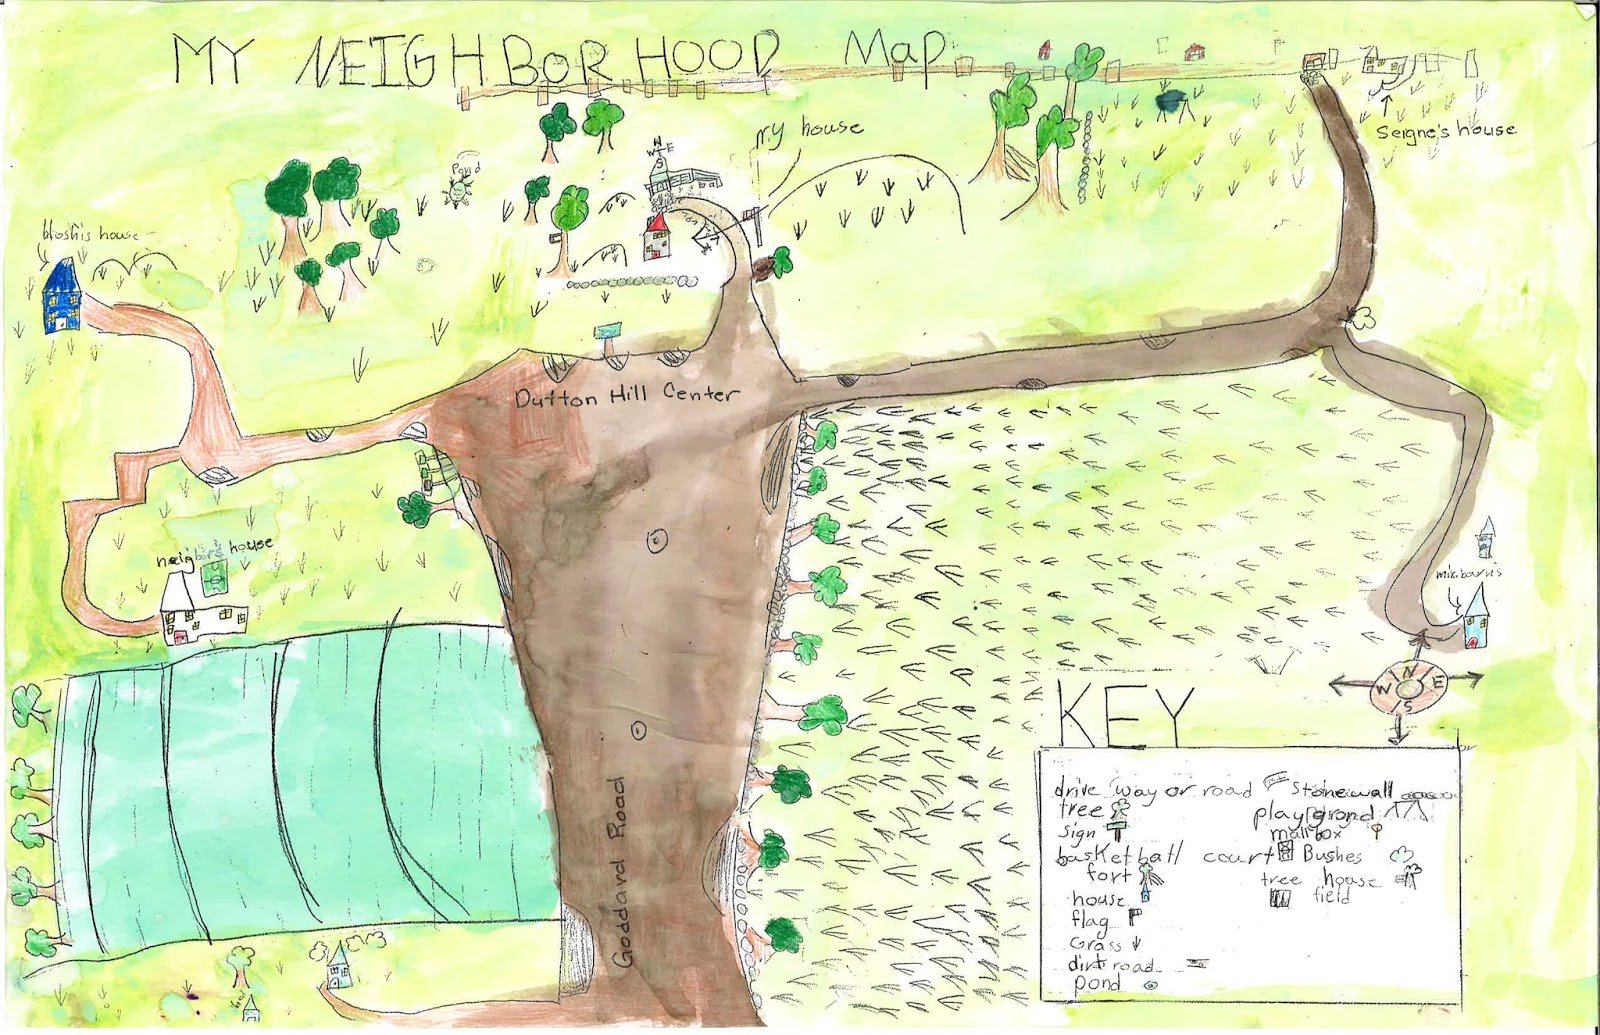 MY NEIGHBORHOOD Map
my house
Seigne's house
Pond
N
W E
S
house
Dutton Hill Center
neighbors house
Goddard Road
N
W E
S
KEY
drive way or road
Stonewall
tree
playground
sign
mailbox
basketball court
Bushes
fort
tree house
house
field
flag
Grass
dirt road
pond